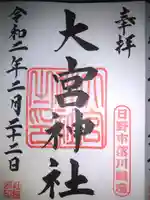 奉拝
日野市落川鎮座
大宮神社
令和二年二月二十二日